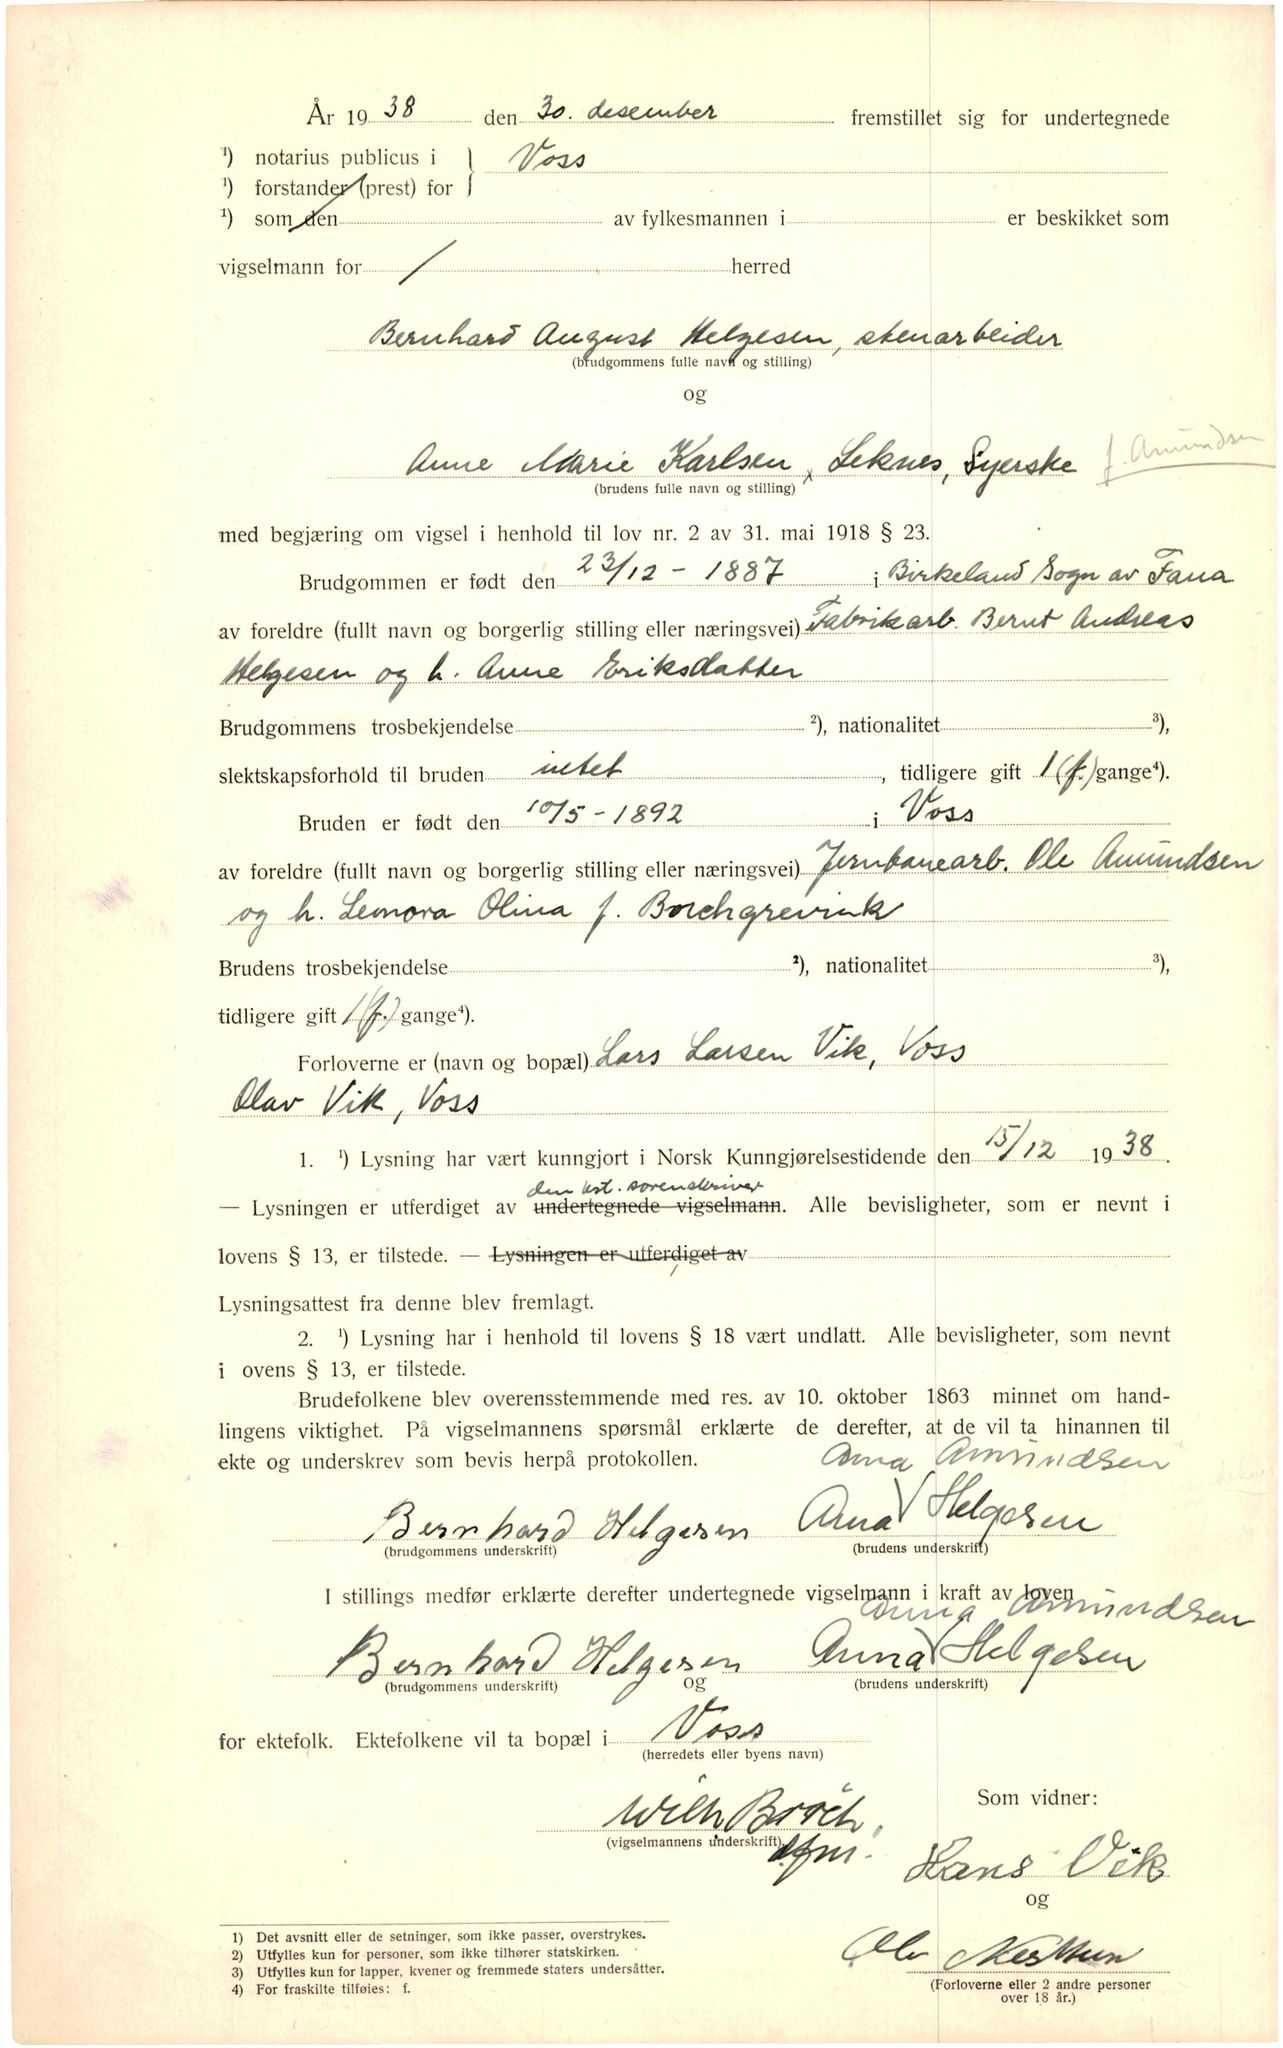 År 1938 den 30. desember fremstillet sig for undertegnede
¹) notarius publicus i } Voss
¹) forstander (prest) for
¹) som den av fylkesmannen i er beskikket som
vigselmann for / herred
Bernhard August Helgesen, stenarbeider
(brudgommens fulle navn og stilling)
og
Anne Marie Karlsen, Leknes, Syerske f. Amundsen
(brudens fulle navn og stilling)
med begjæring om vigsel i henhold til lov nr. 2 av 31. mai 1918 § 23.
Brudgommen er født den 23/12 - 1887 i Birkeland Sogn av Fana
av foreldre (fullt navn og borgerlig stilling eller næringsvei) Fabrikarb. Bernt Andreas
Helgesen og h. Anne Eriksdatter
Brudgommens trosbekjendelse ²), nationalitet ³),
slektskapsforhold til bruden intet, tidligere gift 1 (f.) gange⁴).
Bruden er født den 10/5 - 1892 i Voss
av foreldre (fullt navn og borgerlig stilling eller næringsvei) Jernbanearb. Ole Amundsen
og h. Leonora Olina f. Borchgrevink
Brudens trosbekjendelse ²), nationalitet ³),
tidligere gift 1 (f.) gange⁴).
Forloverne er (navn og bopæl) Lars Larsen Vik, Voss
Olav Vik, Voss
1. ¹) Lysning har vært kunngjort i Norsk Kunngjørelsestidende den 15/12 1938.
den kst. sorenskriver
— Lysningen er utferdiget av undertegnede vigselmann. Alle bevisligheter, som er nevnt i
lovens § 13, er tilstede. — Lysningen er utferdiget av
Lysningsattest fra denne blev fremlagt.
2. ¹) Lysning har i henhold til lovens § 18 vært undlatt. Alle bevisligheter, som nevnt
i ovens § 13, er tilstede.
Brudefolkene blev overensstemmende med res. av 10. oktober 1863 minnet om hand-
lingens viktighet. På vigselmannens spørsmål erklærte de derefter, at de vil ta hinannen til
ekte og underskrev som bevis herpå protokollen.
Anna Amundsen
Bernhard Helgesen Anna Helgesen
(brudgommens underskrift) (brudens underskrift)
I stillings medfør erklærte derefter undertegnede vigselmann i kraft av loven
Anna Amundsen
Bernhard Helgesen Anna Helgesen
(brudgommens underskrift) og (brudens underskrift)
for ektefolk. Ektefolkene vil ta bopæl i Voss
(herredets eller byens navn)
Som vidner:
Wilh. Broch,
(vigselmannens underskrift)
dfm.
Hans Vik
og
(Forloverne eller 2 andre personer
over 18 år.)
1) Det avsnitt eller de setninger, som ikke passer, overstrykes.
2) Utfylles kun for personer, som ikke tilhører statskirken.
3) Utfylles kun for lapper, kvener og fremmede staters undersåtter.
4) For fraskilte tilføies: f.